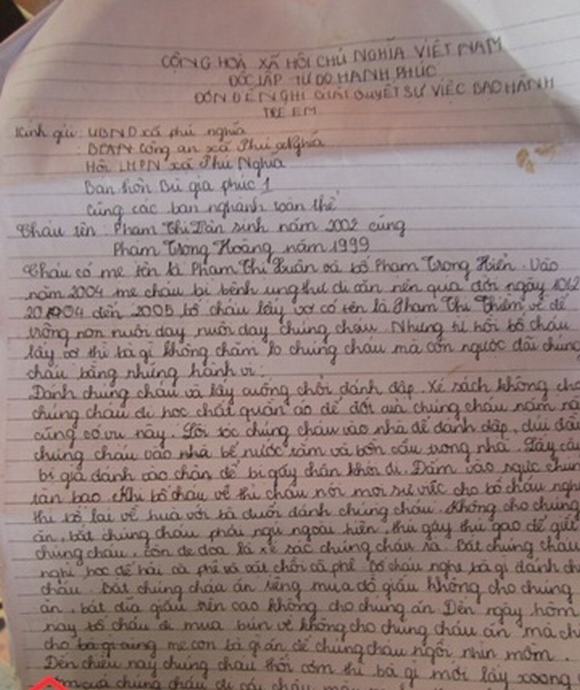 CỘNG HOÀ XÃ HỘI CHỦ NGHĨA VIỆT NAM
ĐỘC LẬP TỰ DO HẠNH PHÚC
ĐƠN ĐỀ NGHỊ GIẢI QUYẾT SỰ VIỆC BẠO HÀNH
TRẺ EM
Kính gửi: UBND xã phú nghĩa
: BCAN Công an xã Phú Nghĩa
Hội LHPN xã Phú Nghĩa
Ban thôn Bù gia phúc 1
Cùng các ban nghành toàn thể
Cháu tên: Phạm Thị Dân sinh năm 2002 cùng
Phạm Trọng Hoàng năm 1999
Cháu có mẹ tên là Phạm Thị Xuân và bố Phạm Trọng Hiển. Vào
năm 2004 mẹ cháu bị bệnh ung thư di căn nên qua đời ngày
2004 đến 2005 bố cháu lấy vợ có tên là Phạm Thị Thiêm về để
trông non nuôi dạy nuôi dạy chúng cháu. Nhưng từ hồi bố cháu
lấy vợ thì bà gì không chăm lo chúng cháu mà còn ngược đãi chúng
cháu bằng những hành vi:
Đánh chúng cháu và lấy cuống chổi đánh đập. Xé sách không cho
chúng cháu đi học chất quần áo để đốt của chúng cháu năm
cũng có vụ này. Lôi tóc chúng cháu vào nhà để đánh đập, dúi đầu
chúng cháu vào nhà bể nước tắm và bồn cầu trong nhà. Lấy cây
bi gia đánh vào chân để bị gãy chân khỏi đi. Đấm vào ngực chúng
tàn bạo. Khi bố cháu về thì cháu nói mọi sự việc cho bố cháu nghe
thì bố lại về hùa với bà đuổi đánh chúng cháu. Không cho chúng
ăn, bắt chúng cháu phải ngủ ngoài hiên, thủ gậy thủ gạo để giết
chúng cháu, còn đe doạ là xẻ xác chúng cháu ra. Bắt chúng cháu
nghỉ học để hái cà phê và vát chồi cà phê. Bố cháu nghe bà gì đánh
cháu. Bắt chúng cháu ăn riêng mua đồ giấu không cho chúng
ăn, bát đĩa giấu trên cao không cho chúng ăn. Đến ngày hôm
nay bố cháu đi mua bún về không cho chúng cháu ăn mà
cho bà gì cùng mẹ con bà gì ăn để chúng cháu ngồi nhìn mồm.
Đến chiều nay chúng cháu thổi cơm thì bà gì mới lấy xoong
chúng cháu